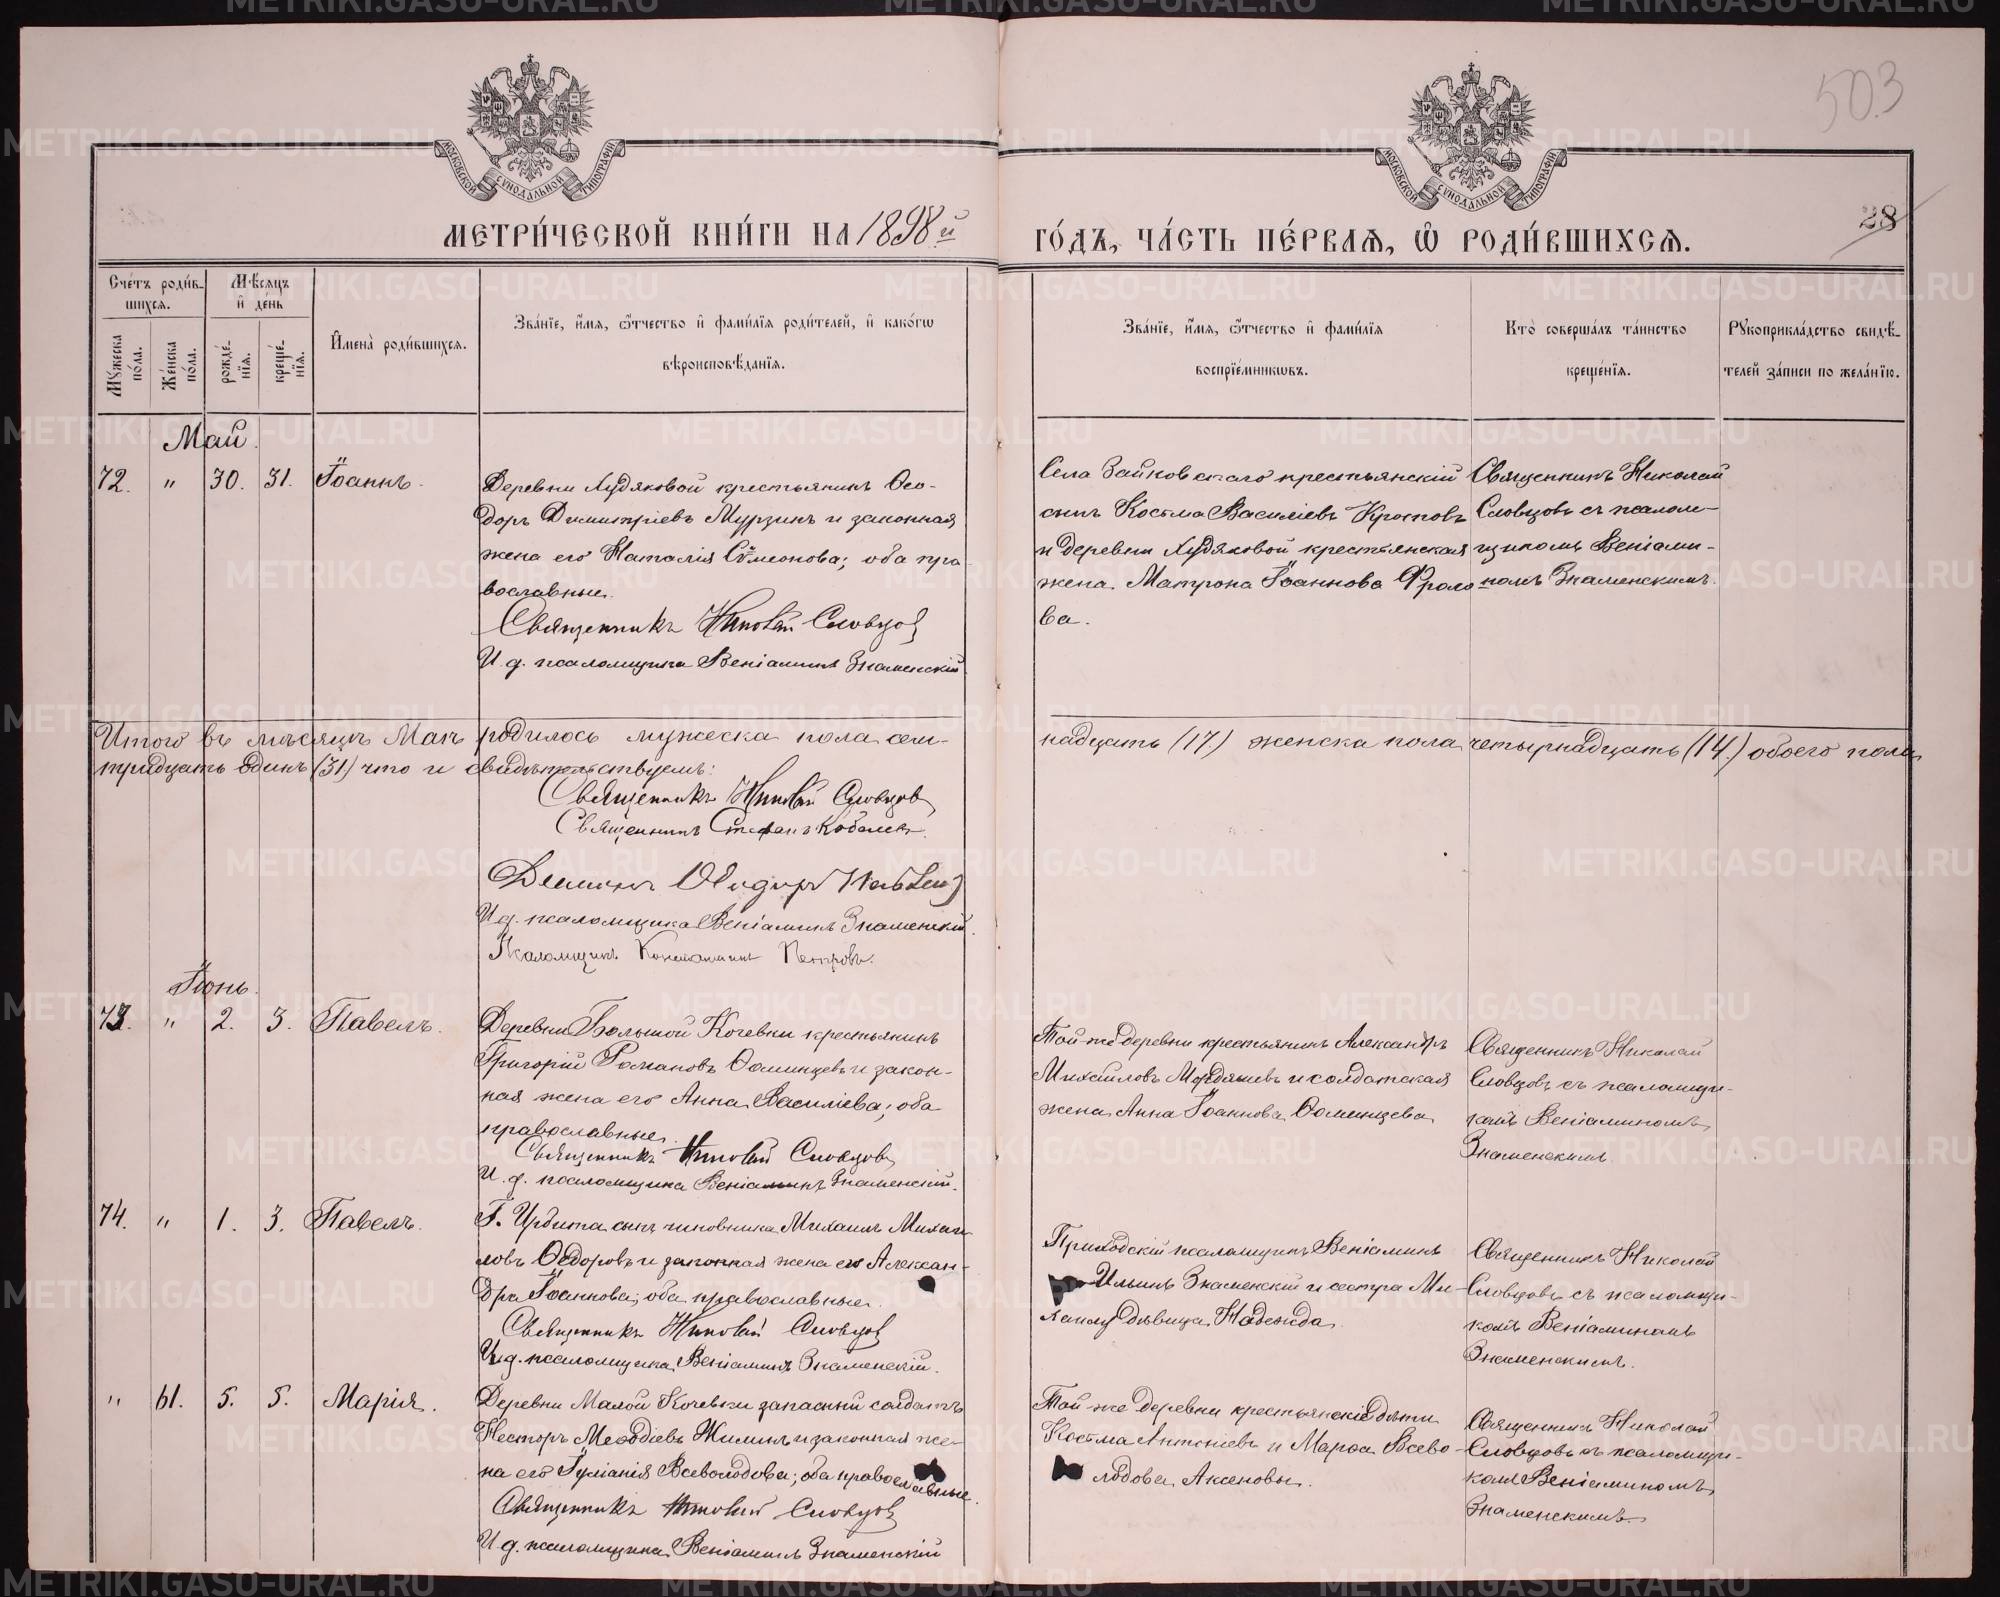 503
28
МОСКОВСКОЙ СУНОДАЛЬНОЙ ТИПОГРАФІИ
МОСКОВСКОЙ СУНОДАЛЬНОЙ ТИПОГРАФІИ
МЕТРИ́ЧЕСКОЙ КНИ́ГИ НА 1898й
ГО́ДЪ, ЧА́СТЬ ПЕ́РВАЯ, Ѡ҆ РОДИ́ВШИХСЯ.
Сче́тъ роди́в-
шихся.
Мѣ́сяцъ
и҆ де́нь
Му́жеска по́ла.
Же́нска по́ла.
рожде́нїя.
креще́нїя.
И҆мена̀ роди́вшихся.
Зва́нїе, и҆́мя, ѻ҆́тчество и҆ фами́лїя роди́телей, и҆ како́гѡ
вѣроисповѣ́данїя.
Зва́нїе, и҆́мя, ѻ҆́тчество и҆ фами́лїя
воспрїе́мникѡвъ.
Кто̀ соверша́лъ та́инство
креще́нїя.
Рукоприкла́дство свидѣ́-
телей за́писи по жела́нїю.
Май.
72. " 30. 31. Іоаннъ.
Деревни Худяковой крестьянинъ Ѳео-
доръ Димитріевъ Мурзинъ и законная
жена его Наталія Сѵмеонова; оба пра-
вославные.
Священникъ Николай Словцов
И. д. псаломщика Веніаминъ Знаменскій
Села Зайковскаго крестьянскій
сынъ Косьма Василіевъ Кротовъ
и деревни Худяковой крестьянская
жена Матрона Іоаннова Фроло-
ва.
Священникъ Николай
Словцовъ съ псалом-
щикомъ Веніами-
номъ Знаменскимъ.
Итого въ мѣсяцѣ Маѣ родилось мужеска пола сем-
надцать (17.) женска пола четырнадцать (14.) обоего пола
тридцать одинъ (31.) что и свидѣтельствуемъ:
Священникъ Николай Словцов
Священникъ Стефанъ
И. д. псаломщика Веніаминъ Знаменскій.
Псаломщикъ Константинъ Петровъ.
Іюнь.
73. " 2. 3. Павелъ.
Деревни Большой Кочевки крестьянинъ
Григорій Романовъ Ѳоминцевъ и закон-
ная жена его Анна Василіева; оба
православные.
Священникъ Николай Словцов
И. д. псаломщика Веніаминъ Знаменскій.
Той-же деревни крестьянинъ Александръ
Михайловъ Мордяшевъ и солдатская
жена Анна Іоаннова Ѳоминцева
Священникъ Николай
Словцовъ съ псаломщи-
комъ Веніаминомъ
Знаменскимъ
74. " 1. 3. Павелъ.
Г. Ирбита сынъ чиновника Михаилъ Михаи-
ловъ Ѳедоровъ и законная жена его Алексан-
дра Іоаннова; оба православные.
Священникъ Николай Словцов
И. д. псаломщика Веніаминъ Знаменскій.
Приходскій псаломщикъ Веніаминъ
Ильинъ Знаменскій и сестра Ми-
хаилу дѣвица Надежда.
Священникъ Николай
Словцовъ съ псаломщи-
комъ Веніаминомъ
Знаменскимъ.
" 61. 5. 5. Марія.
Деревни Малой Кочевки запасный солдатъ
Несторъ Меѳодіевъ Жилинъ и законная же-
на его Іуліанія Всеволодова; оба православные.
Священникъ Николай Словцов
И. д. псаломщика Веніаминъ Знаменскій
Той-же деревни крестьянскіе дѣти
Косьма Антоніевъ и Марѳа Всево-
лодова Аксеновы.
Священникъ Николай
Словцовъ съ псаломщи-
комъ Веніаминомъ
Знаменскимъ.
METRIKI.GASO-URAL.RU